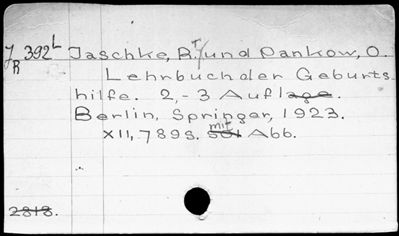 J R 392L Jaschke, R. T. und Pankow, O.
Lehrbuch der Geburts
hilfe. 2,-3 Auflage.
Berlin, Springer, 1923.
XII, 789S. mit 501 Abb.
2818.